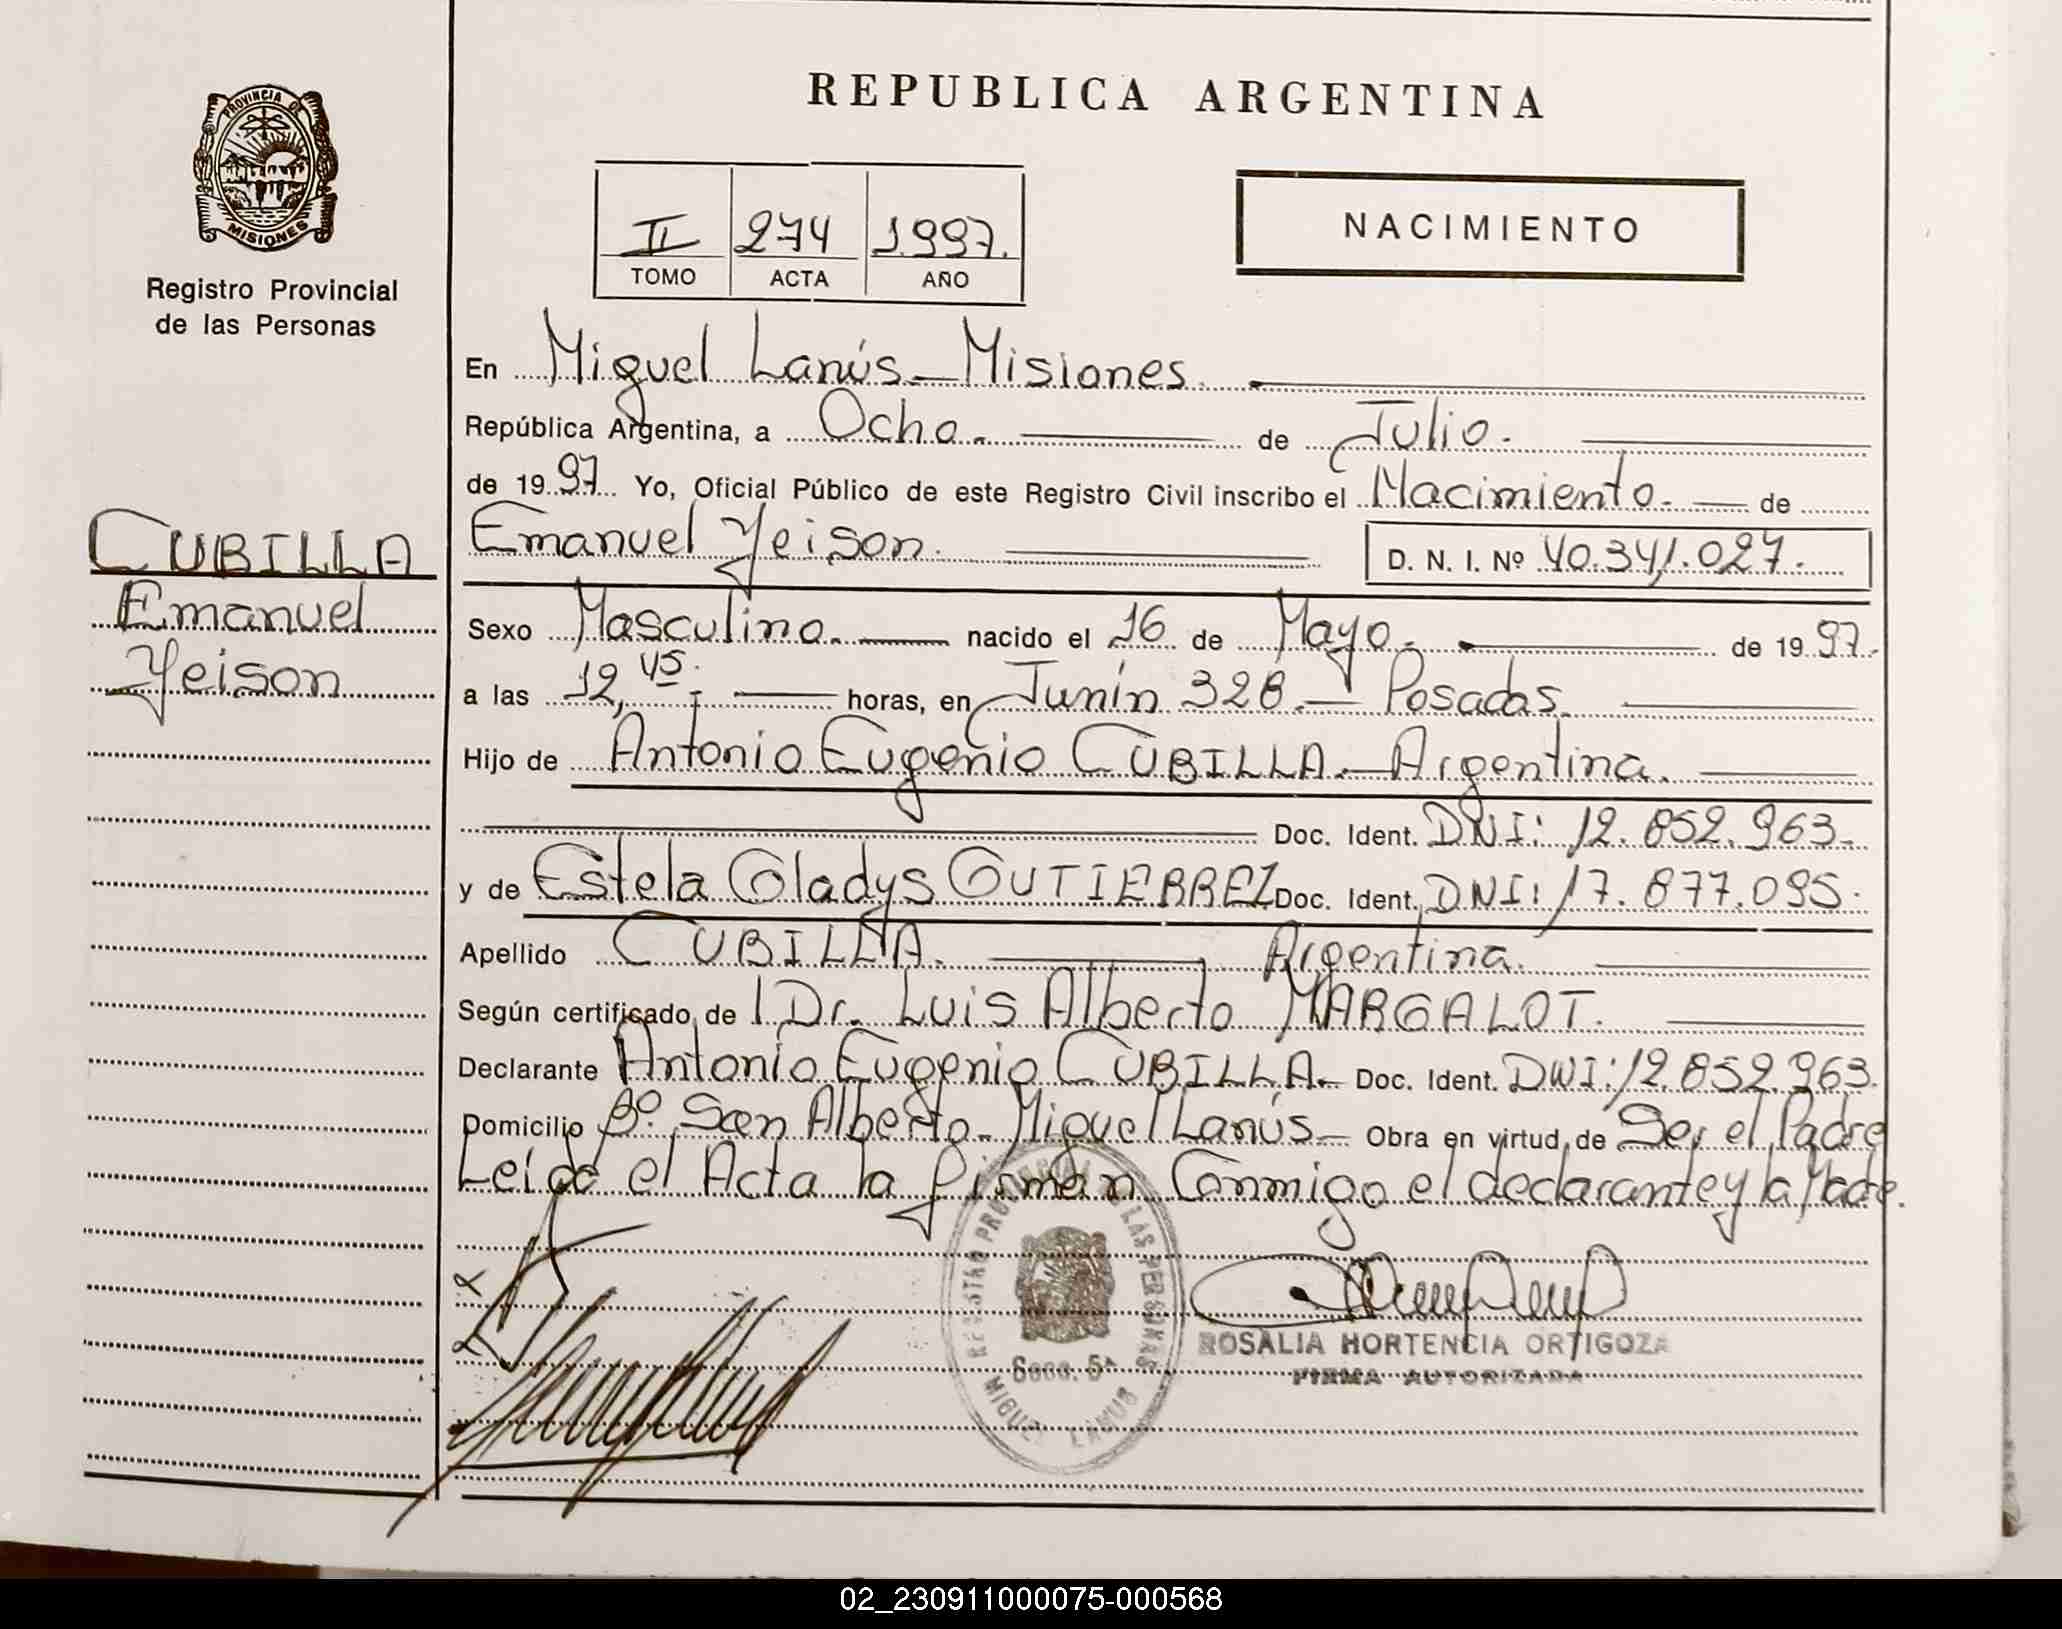 REPUBLICA ARGENTINA
PROVINCIA DE
MISIONES
Registro Provincial
de las Personas
II 274 1.997.
TOMO ACTA AÑO
NACIMIENTO
CUBILLA
Emanuel
Yeison
En Miguel Lanús - Misiones.
República Argentina, a Ocho. de Julio.
de 1997 Yo, Oficial Público de este Registro Civil inscribo el Nacimiento. de
Emanuel Yeison. D. N. I. Nº 40.341.027.
Sexo Masculino. nacido el 16 de Mayo. de 1997.
a las 12,45. horas, en Junín 328.- Posadas.
Hijo de Antonio Eugenio CUBILLA.- Argentina.
Doc. Ident. DNI: 12.852.963.
y de Estela Gladys GUTIERREZ Doc. Ident. DNI: 17.877.095.
Apellido CUBILLA. Argentina.
Según certificado de l Dr. Luis Alberto MARGALOT.
Declarante Antonio Eugenio CUBILLA.- Doc. Ident. DNI: 12.852.963.
Domicilio Bº. San Alberto - Miguel Lanús - Obra en virtud de Ser el Padre
Leída el Acta la firman Conmigo el declarante y la Madre.
REGISTRO PROVINCIAL DE LAS PERSONAS
Secc. 5ª
MIGUEL LANUS
ROSALIA HORTENCIA ORTIGOZA
FIRMA AUTORIZADA
02_230911000075-000568